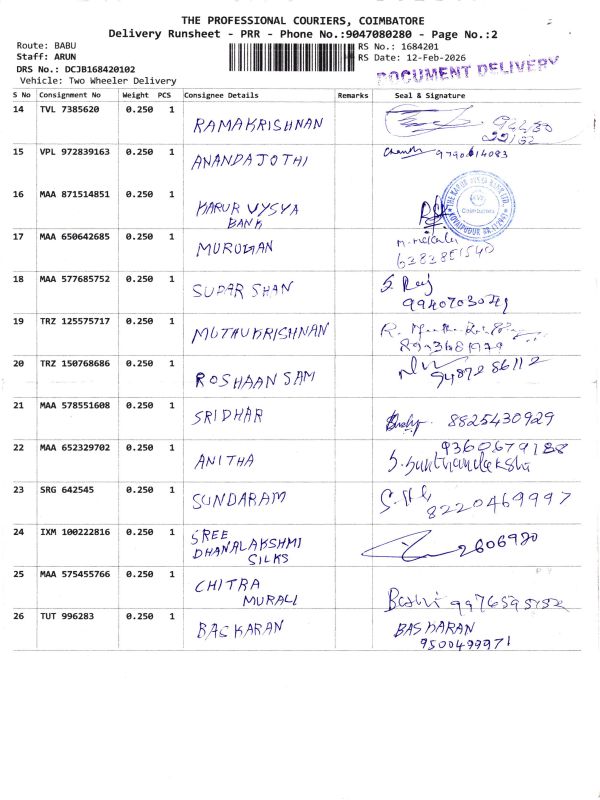 THE PROFESSIONAL COURIERS, COIMBATORE
Delivery Runsheet - PRR - Phone No.:9047080280 - Page No.:2
Route: BABU
Staff: ARUN
DRS No.: DCJB168420102
Vehicle: Two Wheeler Delivery
RS No.: 1684201
RS Date: 12-Feb-2026
DOCUMENT DELIVERY
S No Consignment No Weight PCS Consignee Details Remarks Seal & Signature
14 TVL 7385620 0.250 1 RAMAKRISHNAN
15 VPL 972839163 0.250 1 ANANDAJOTHI 9790614083
16 MAA 871514851 0.250 1 KARUR VYSYA
BANK
Coimbatore
17 MAA 650642685 0.250 1 MURUGAN
6383851540
18 MAA 577685752 0.250 1 SUDARSHAN S. Raj
19 TRZ 125575717 0.250 1 MUTHUKRISHNAN
20 TRZ 150768686 0.250 1 ROSHAAN SAM
9487286112
21 MAA 578551608 0.250 1 SRIDHAR 8825430929
22 MAA 652329702 0.250 1 ANITHA 9360679188
23 SRG 642545 0.250 1 SUNDARAM
8220469997
24 IXM 100222816 0.250 1 SREE
DHANALAKSHMI
SILKS
2606920
25 MAA 575455766 0.250 1 CHITRA
MURALI
26 TUT 996283 0.250 1 BASKARAN BASKARAN
9500499971